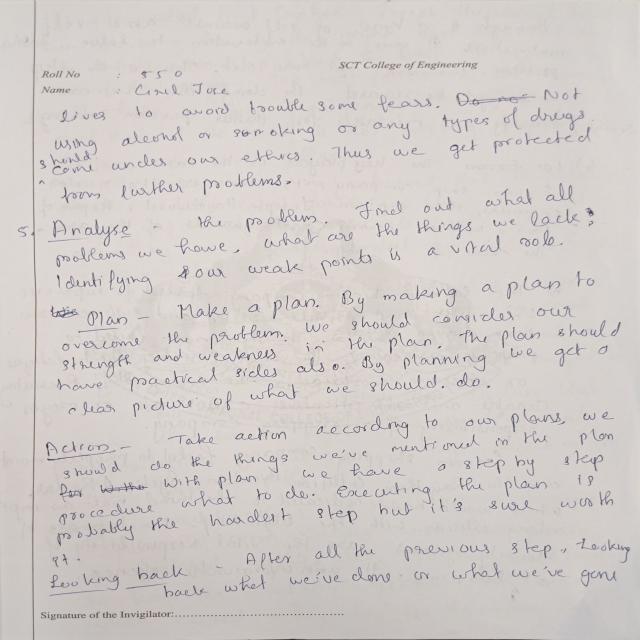 SCT College of Engineering
Roll No : 550
Name :
lives to avoid trouble some fears. Do not Not
using alcohol or somoking or any types of drugs
should
^ come under our ethics. Thus we get protected
from further problems.
5. Analyse - the problem. Find out what all
problems we have, what are the things we lack?
Identifying our weak points is a vital role.
Plan - Make a plan. By making a plan to
overcome the problem. we should consider our
strength and weakness in the plan. The plan should
have practical sides also. By planning we get a
clear picture of what we should. do.
Action - Take action according to our plans, we
should do the things we've mentioned in the plan
With plan we have a step by step
procedure what to do. Executing the plan is
probably the hardest step but it's sure worth
it.
Looking back - After all the previous step, Looking
back what we've done or what we've gone
Signature of the Invigilator: